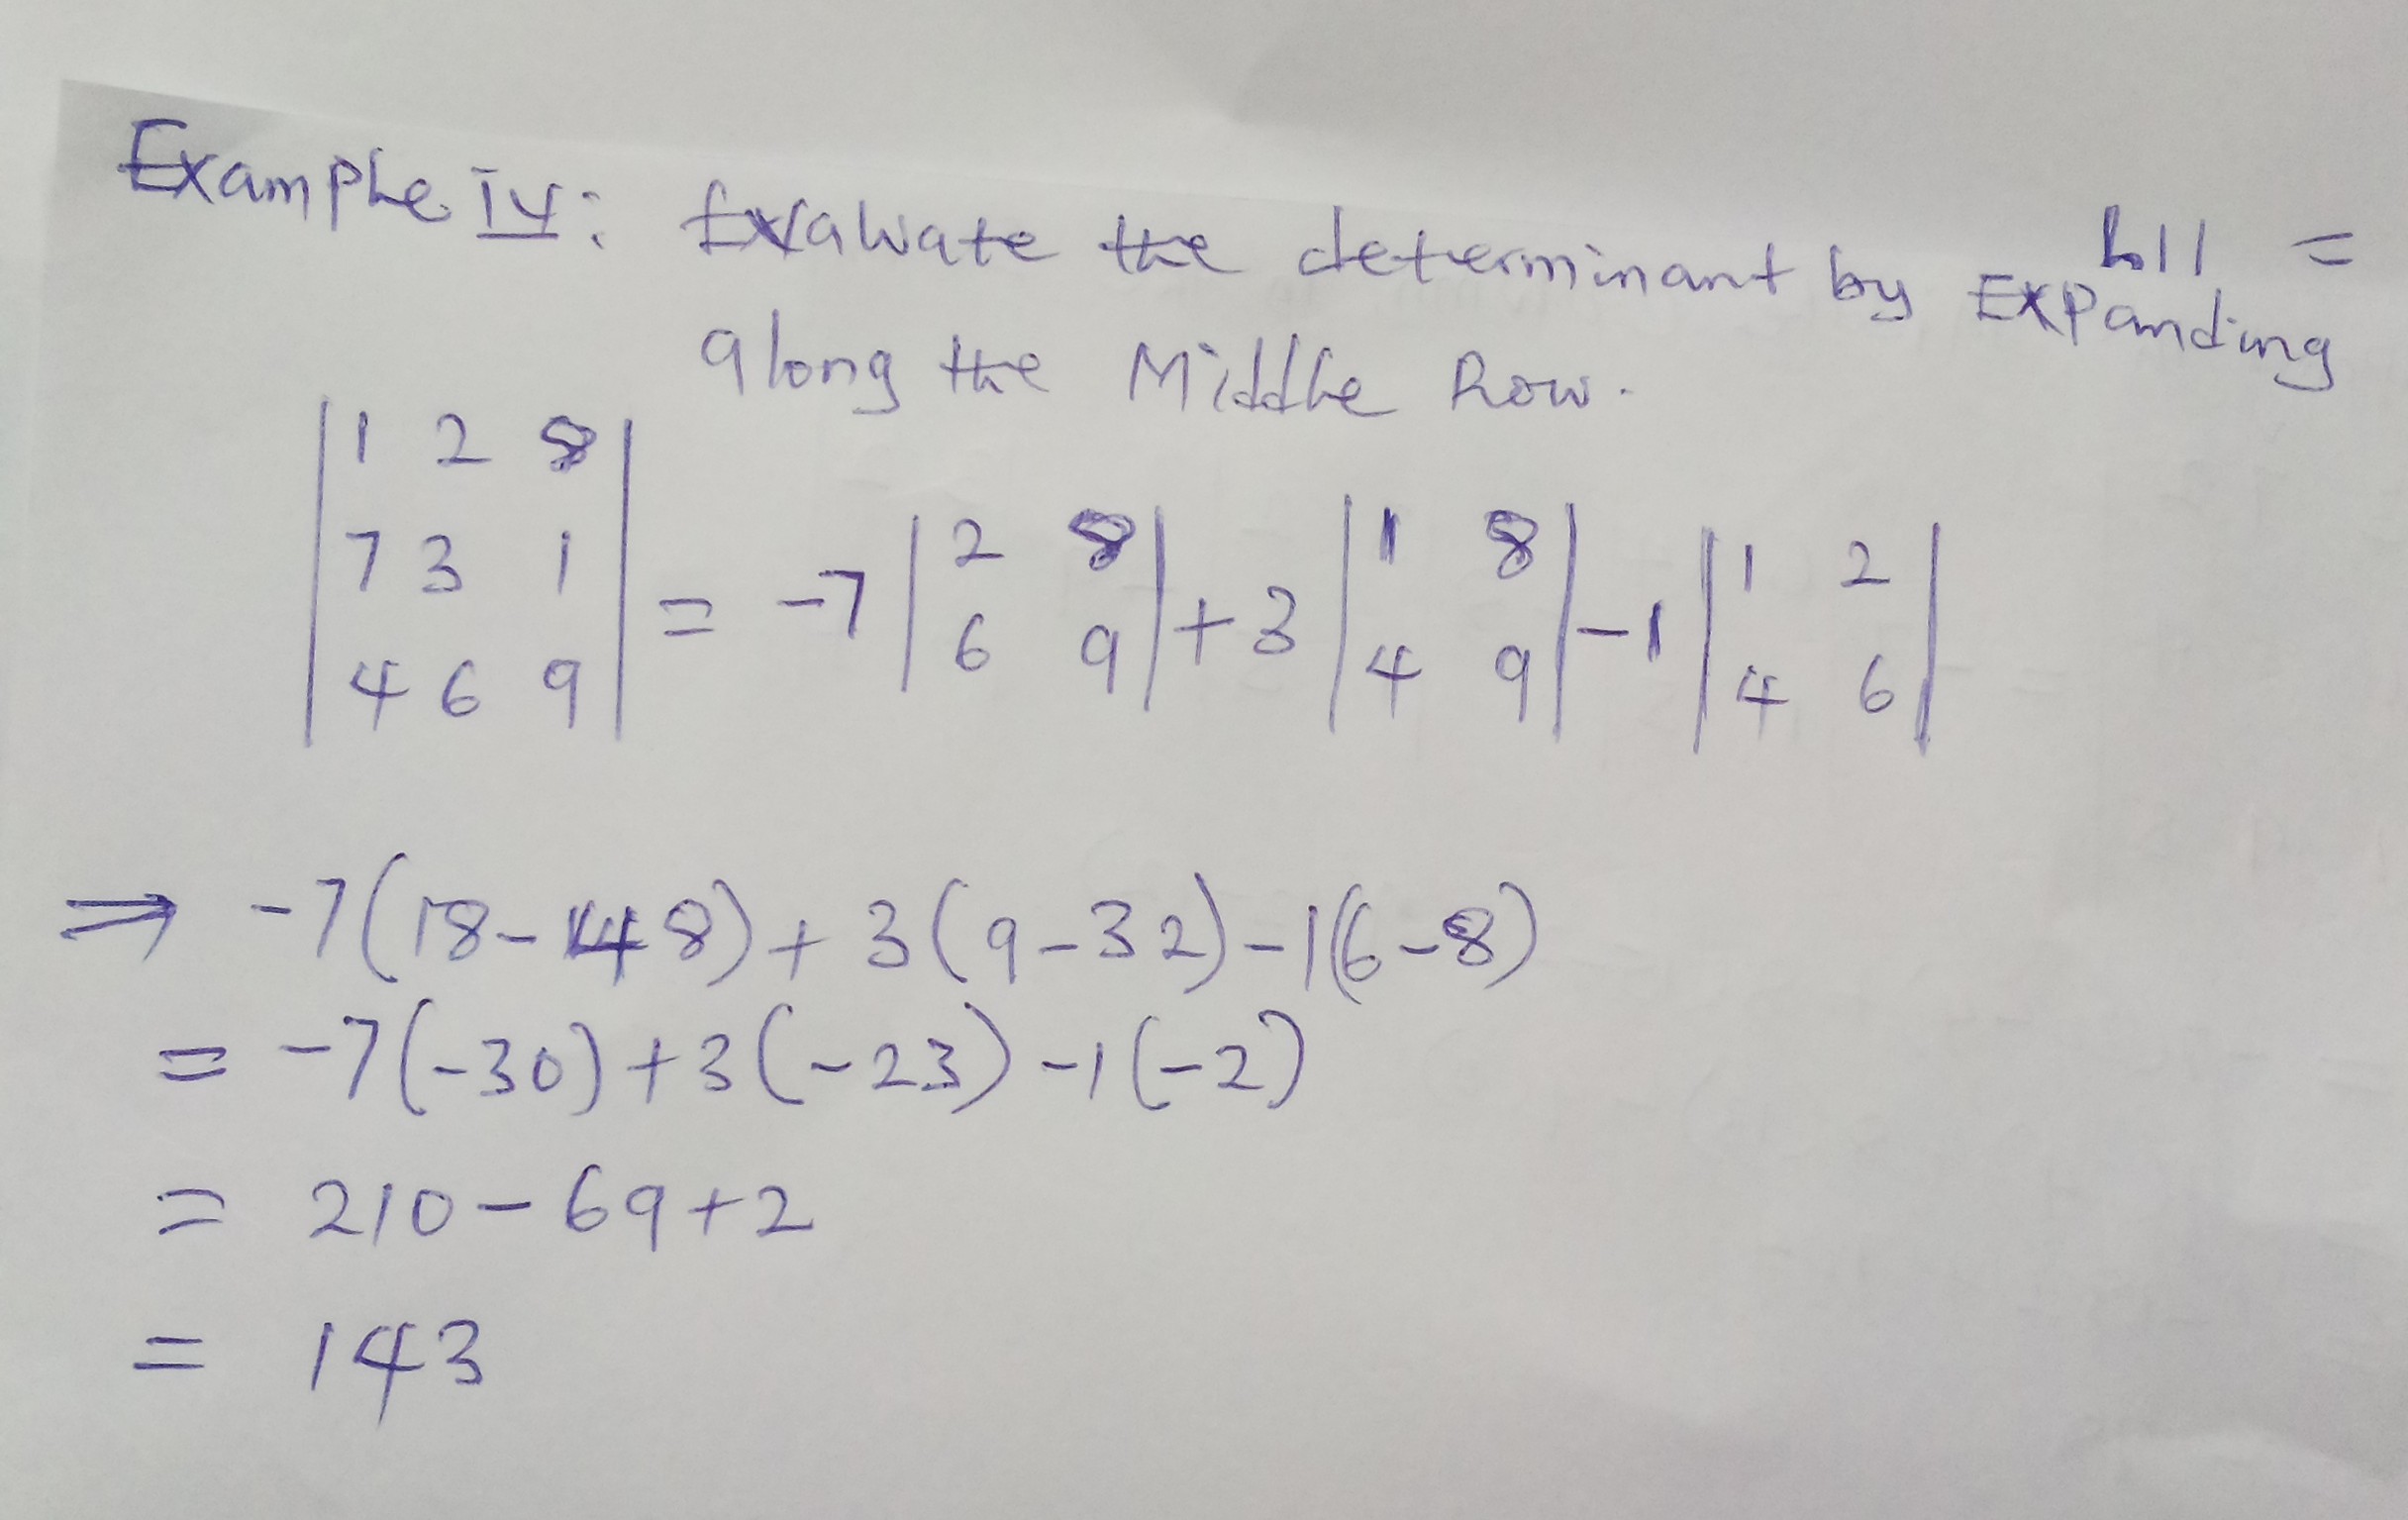 Example IV: Evaluate the determinant by Expanding
=
along the Middle Row.
| 1 2 8 |
| 7 3 1 | = -7 | 2 8 | + 3 | 1 8 | - 1 | 1 2 |
| 4 6 9 | | 6 9 | | 4 9 | | 4 6 |
⇒ -7(18-48) + 3(9-32) - 1(6-8)
= -7(-30) + 3(-23) - 1(-2)
= 210 - 69 + 2
= 143